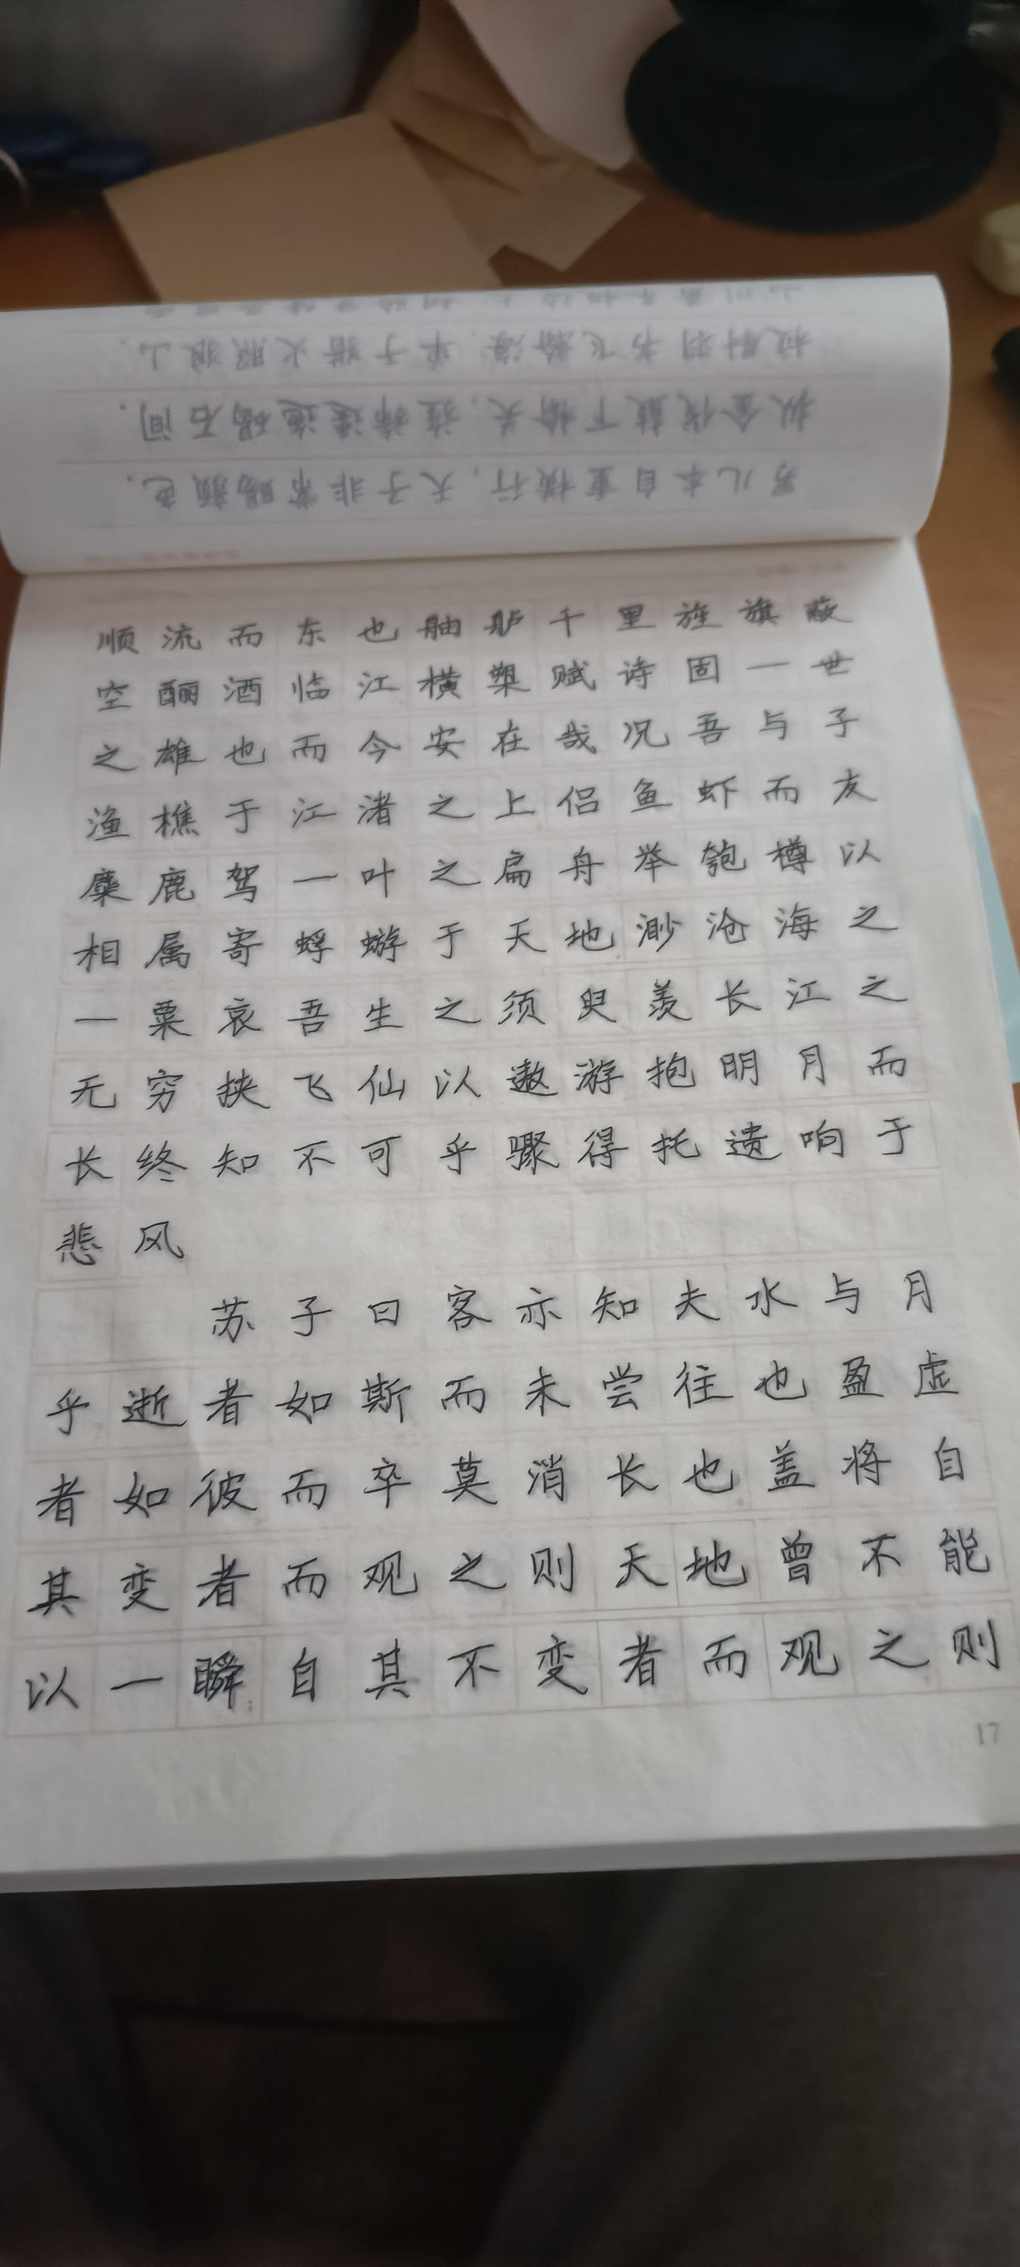 顺流而东也舳舻千里旌旗蔽
空酾酒临江横槊赋诗固一世
之雄也而今安在哉况吾与子
渔樵于江渚之上侣鱼虾而友
麋鹿驾一叶之扁舟举匏樽以
相属寄蜉蝣于天地渺沧海之
一粟哀吾生之须臾羡长江之
无穷挟飞仙以遨游抱明月而
长终知不可乎骤得托遗响于
悲风
苏子曰客亦知夫水与月
乎逝者如斯而未尝往也盈虚
者如彼而卒莫消长也盖将自
其变者而观之则天地曾不能
以一瞬自其不变者而观之则
17